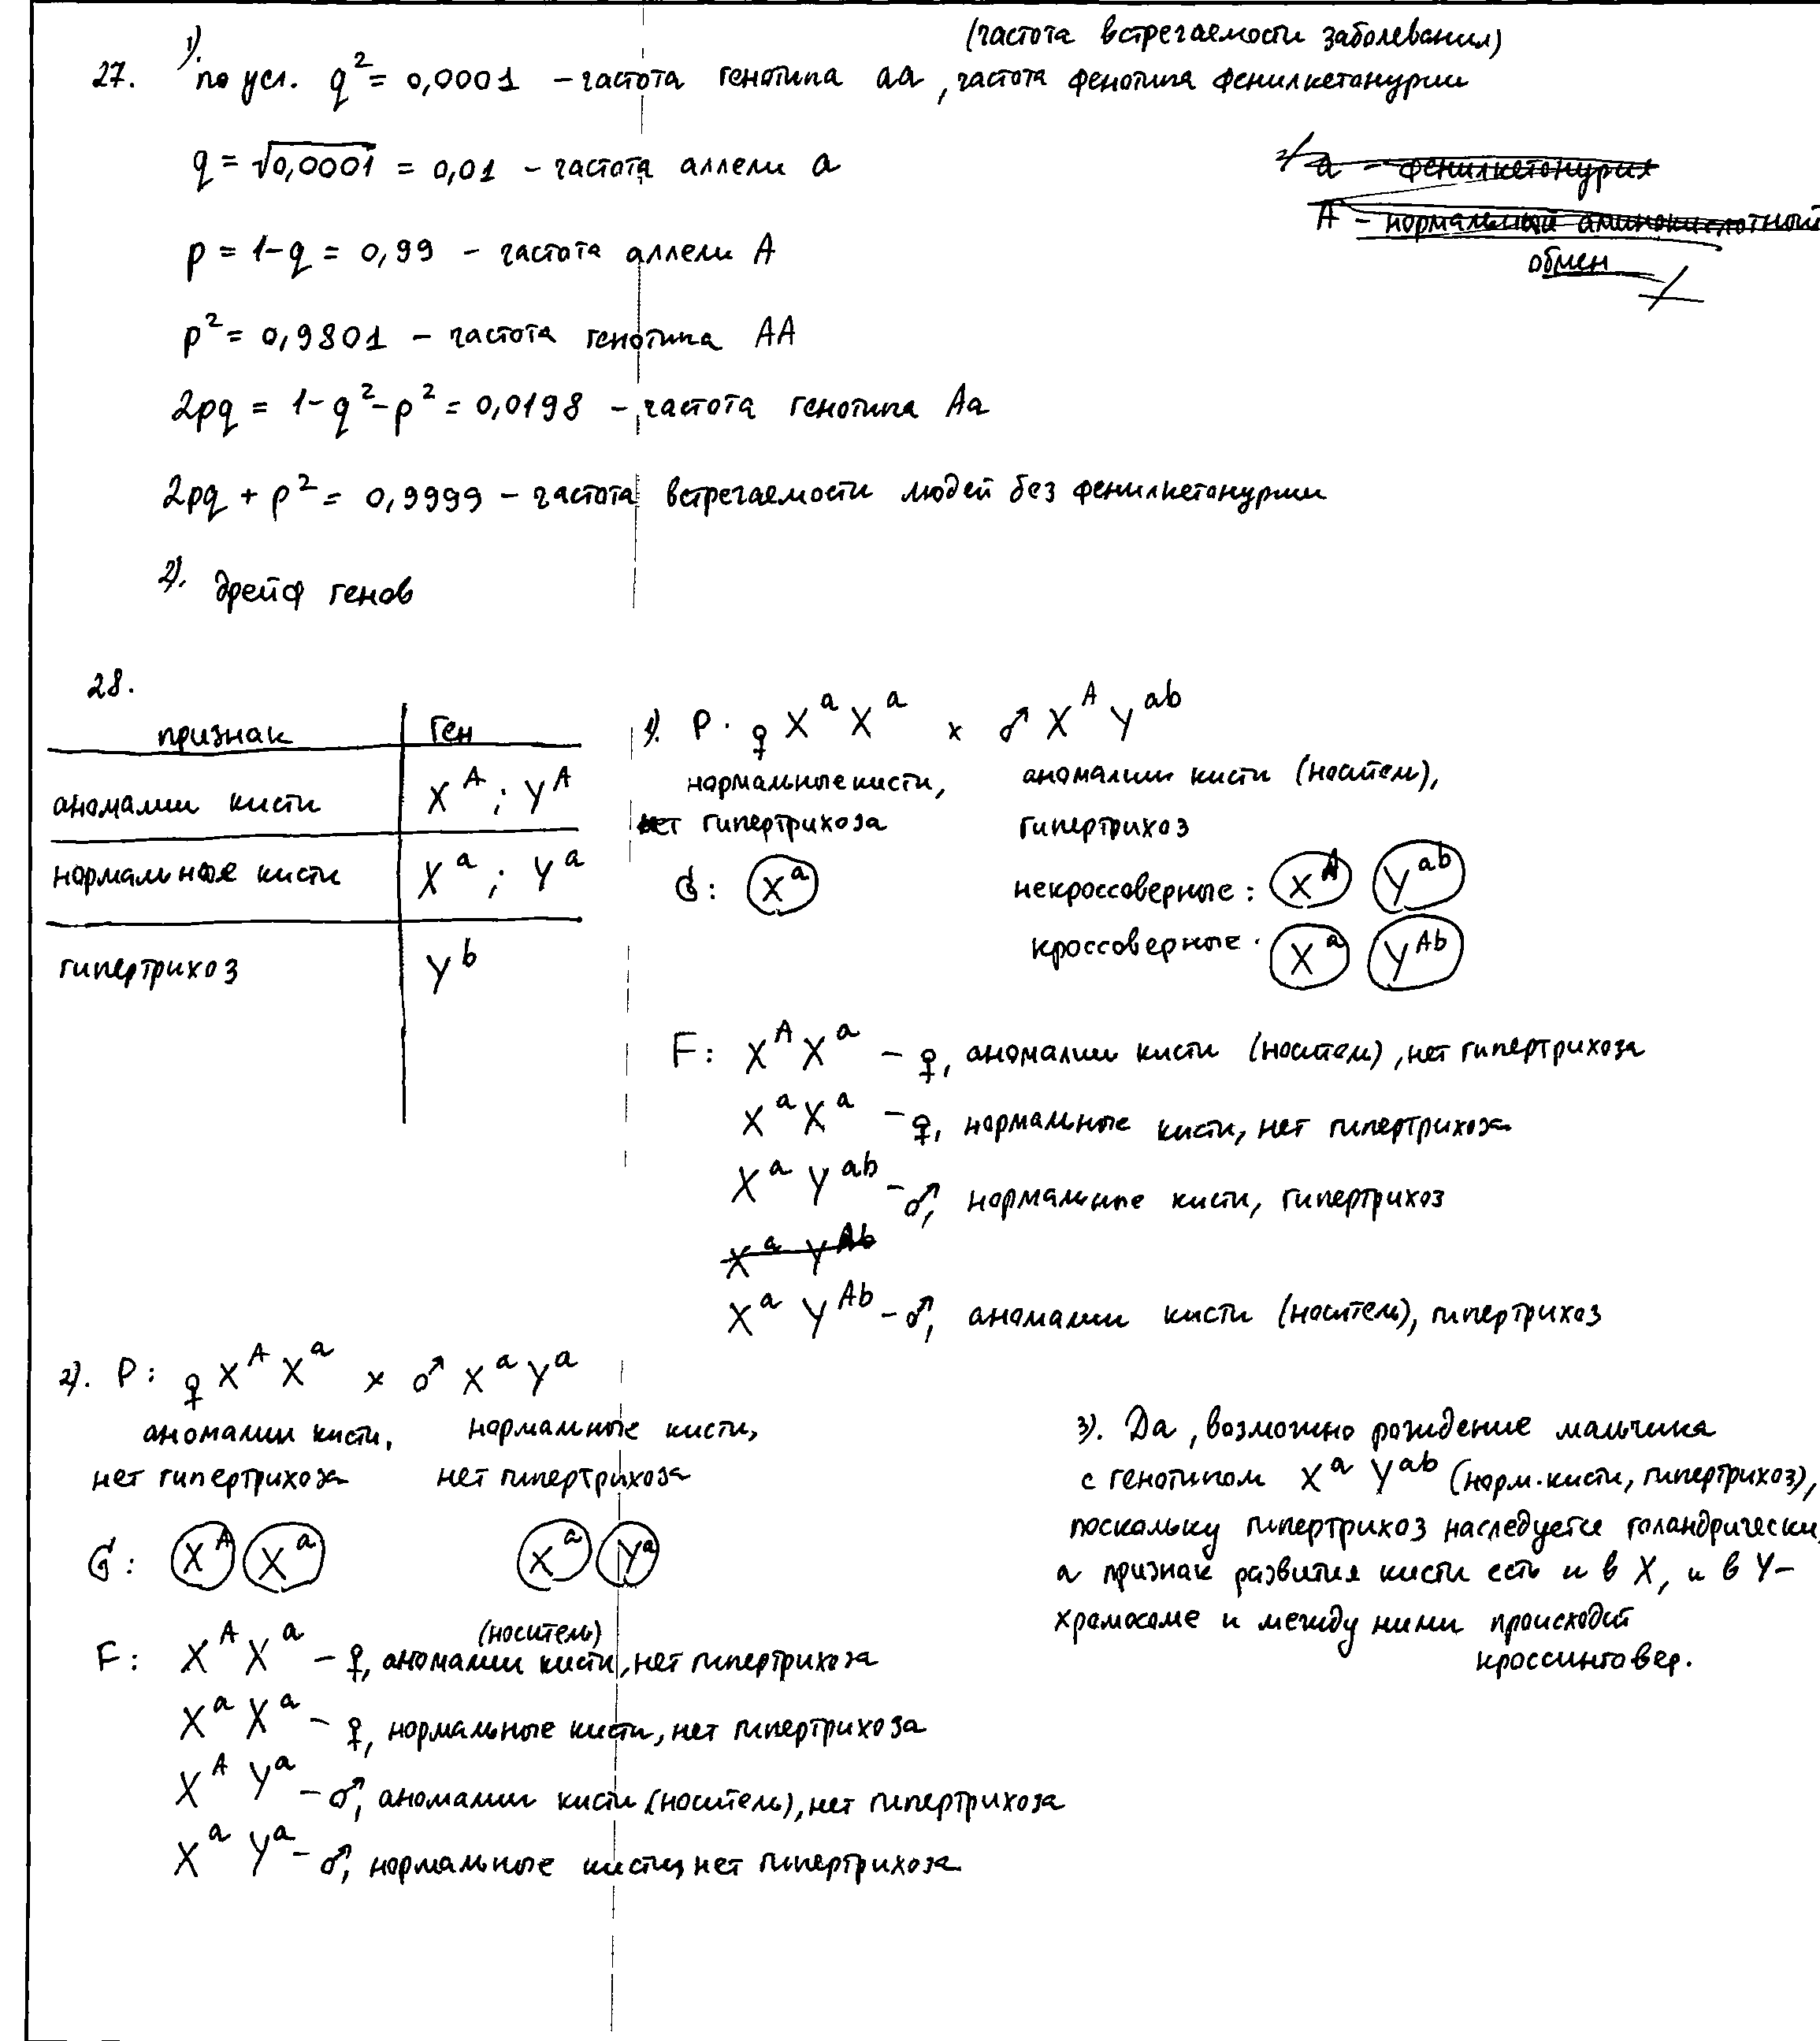 (частота встречаемости заболевания)
27. 1). по усл. q² = 0,0001 – частота генотипа аа, частота фенотипа фенилкетонурии
q = √0,0001 = 0,01 – частота аллели а
p = 1-q = 0,99 – частота аллели А
p² = 0,9801 – частота генотипа АА
2pq = 1-q²-p² = 0,0198 – частота генотипа Аа
2pq + p² = 0,9999 – частота встречаемости людей без фенилкетонурии
2). дрейф генов
а – фенилкетонурия
А – нормальный аминокислотный
обмен
28.
признак Ген
аномалии кисти X^A ; Y^A
нормальные кисти X^a ; Y^a
гипертрихоз Y^b
1). P. ♀ X^a X^a × ♂ X^A Y^ab
нормальные кисти, аномалии кисти (носитель),
нет гипертрихоза гипертрихоз
G: X^a некроссоверные: X^A Y^ab
кроссоверные. X^a Y^Ab
F: X^A X^a – ♀, аномалии кисти (носитель), нет гипертрихоза
X^a X^a – ♀, нормальные кисти, нет гипертрихоза
X^a Y^ab – ♂, нормальные кисти, гипертрихоз
X^a Y^Ab
X^a Y^Ab – ♂, аномалии кисти (носитель), гипертрихоз
2). P: ♀ X^A X^a × ♂ X^a Y^a
аномалии кисти, нормальные кисти,
нет гипертрихоза нет гипертрихоза
G: X^A X^a X^a Y^a
(носитель)
F: X^A X^a – ♀, аномалии кисти, нет гипертрихоза
X^a X^a – ♀, нормальные кисти, нет гипертрихоза
X^A Y^a – ♂, аномалии кисти (носитель), нет гипертрихоза
X^a Y^a – ♂, нормальные кисти, нет гипертрихоза
3). Да, возможно рождение мальчика
с генотипом X^a Y^ab (норм. кисти, гипертрихоз),
поскольку гипертрихоз наследуется голандрически,
а признак развития кисти есть и в X, и в Y-
хромосоме и между ними происходит
кроссинговер.